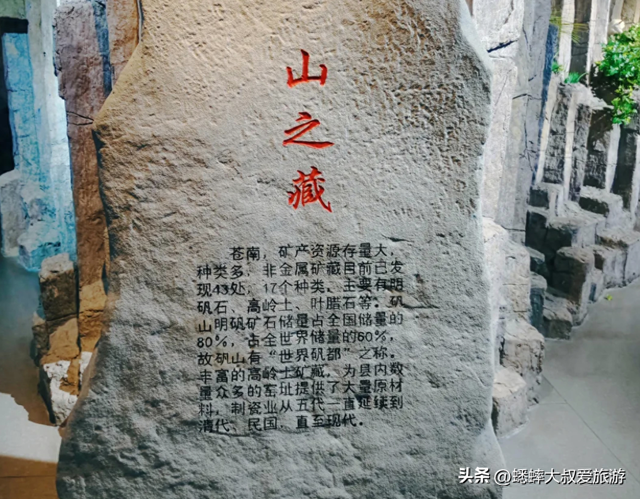 山
之
藏
苍南，矿产资源存量大，
种类多，非金属矿藏目前已发
现43处，17个种类。主要有明
矾石、高岭土、叶腊石等。矾
山明矾矿石储量占全国储量的
80%，占全世界储量的60%，
故矾山有“世界矾都”之称。
丰富的高岭土矿藏，为县内数
量众多的窑址提供了大量原材
料，制瓷业从五代一直延续到
清代、民国，直至现代。
头条 @蟋蟀大叔爱旅游